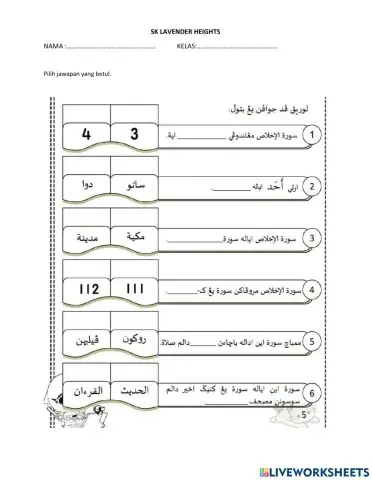 SK LAVENDER HEIGHTS
NAMA :.................................................... KELAS:...............................................
Pilih jawapan yang betul.
لوريق ڤد جواڤن يڠ بتول.
1 سورة الإخلاص مڠاندوڠي __________ اية.
3 4
2 ارتي أَحَد اياله ________.
ساتو دوا
3 سورة الإخلاص اياله سورة __________.
مكية مدينة
4 سورة الإخلاص مروڤاكن سورة يڠ ك-________.
111 112
5 ممباچ سورة اين اداله باچاءن ______ دالم صلاة.
روكون ڤيليهن
6 سورة اين اياله سورة يڠ كتيݢ اخير دالم
سوسونن مصحف __________.
الحديث القرءان
5
LIVEWORKSHEETS